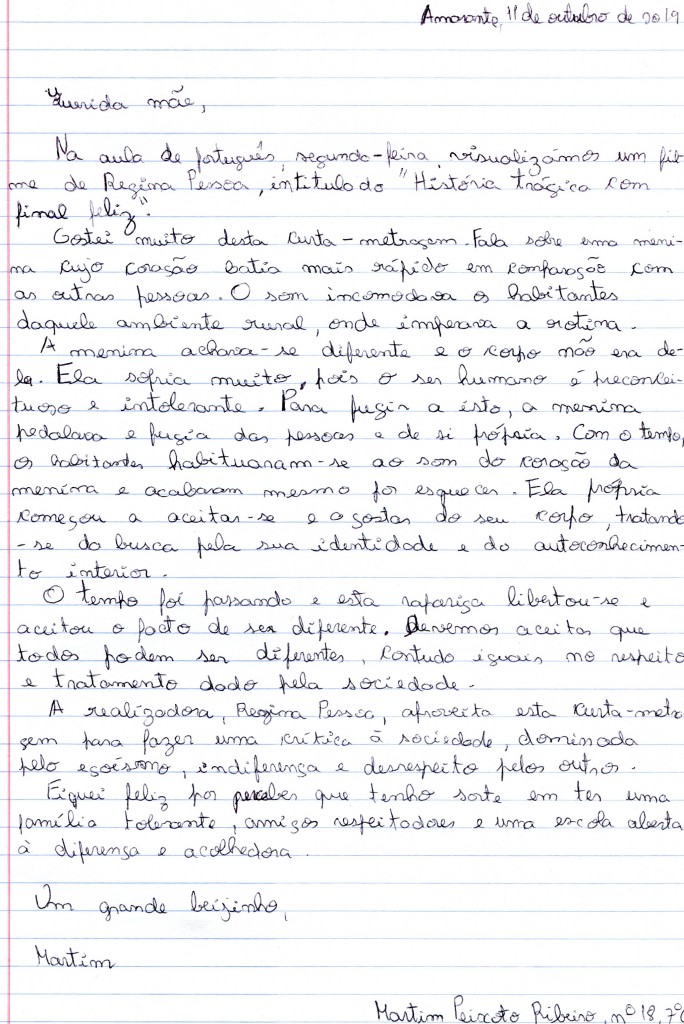 Amarante, 11 de outubro de 2019
Querida mãe,
Na aula de português, segunda-feira, visualizámos um fil-
me de Regina Pessoa, intitulado "História trágica com
final feliz".
Gostei muito desta curta-metragem. Fala sobre uma meni-
na cujo coração batia mais rápido em comparação com
as outras pessoas. O som incomodava os habitantes
daquele ambiente rural, onde imperava a rotina.
A menina achava-se diferente e o corpo não era de-
la. Ela sofria muito, pois o ser humano é preconcei-
tuoso e intolerante. Para fugir a isto, a menina
pedalava e fugia das pessoas e de si própria. Com o tempo,
os habitantes habituaram-se ao som do coração da
menina e acabaram mesmo por esquecer. Ela própria
começou a aceitar-se e a gostar do seu corpo, tratando
-se da busca pela sua identidade e do autoconhecimen-
to interior.
O tempo foi passando e esta rapariga libertou-se e
aceitou o facto de ser diferente. Devemos aceitar que
todos podem ser diferentes, contudo iguais no respeito
e tratamento dado pela sociedade.
A realizadora, Regina Pessoa, aproveita esta curta-metra
gem para fazer uma crítica à sociedade, dominada
pelo egoísmo, indiferença e desrespeito pelos outros.
Fiquei feliz por perceber que tenho sorte em ter uma
família tolerante, amigos respeitadores e uma escola aberta
à diferença e acolhedora.
Um grande beijinho,
Martim
Martim Peixoto Ribeiro, nº 18, 7º